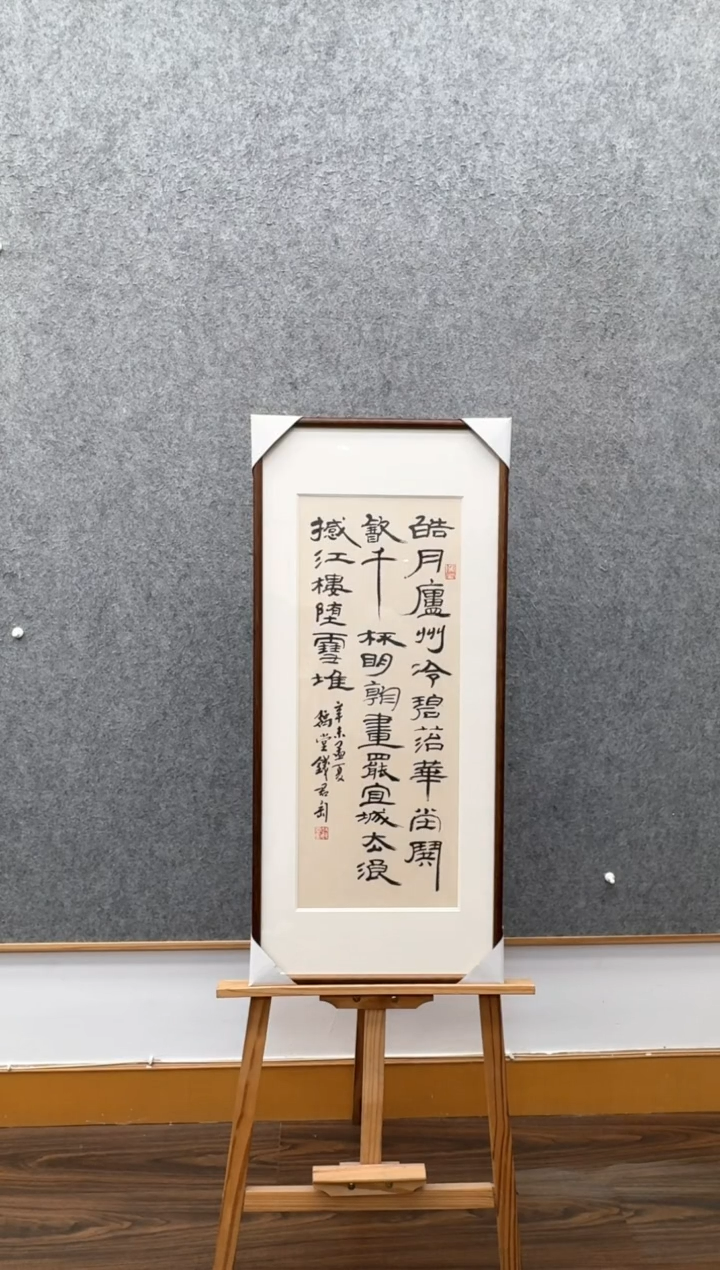 皓月廬州冷碧苔華堂鬪
飲千杯明朝畫罷宜城去浪
撼江樓墮雪堆
辛未孟夏
豫堂錢君匋